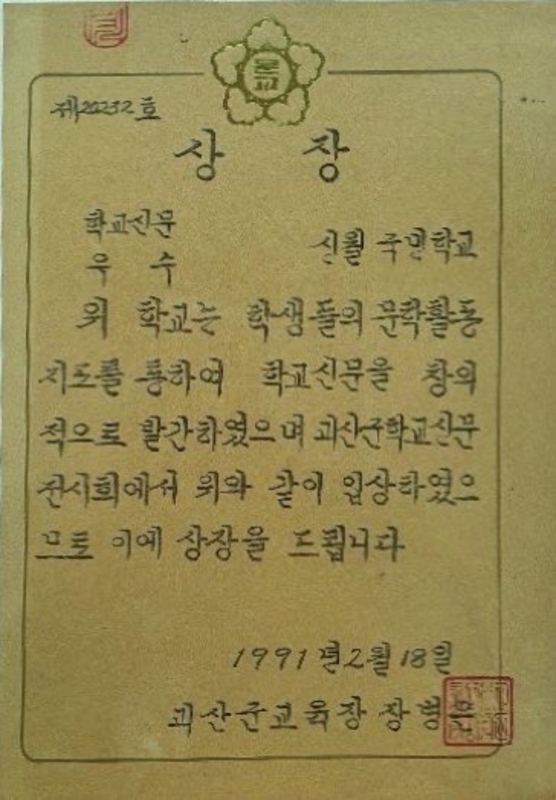 문교
제20232호
상 장
학교신문
우 수
신월 국민학교
위 학교는 학생들의 문학활동
지도를 통하여 학교신문을 창의
적으로 발간하였으며 괴산군학교신문
전시회에서 위와 같이 입상하였으
므로 이에 상장을 드립니다
1991년 2월 18일
괴산군교육장 장병